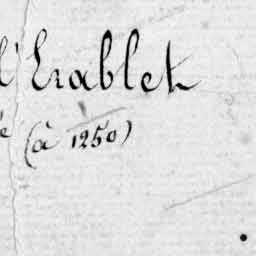 l'Erablet
é (à 1250)